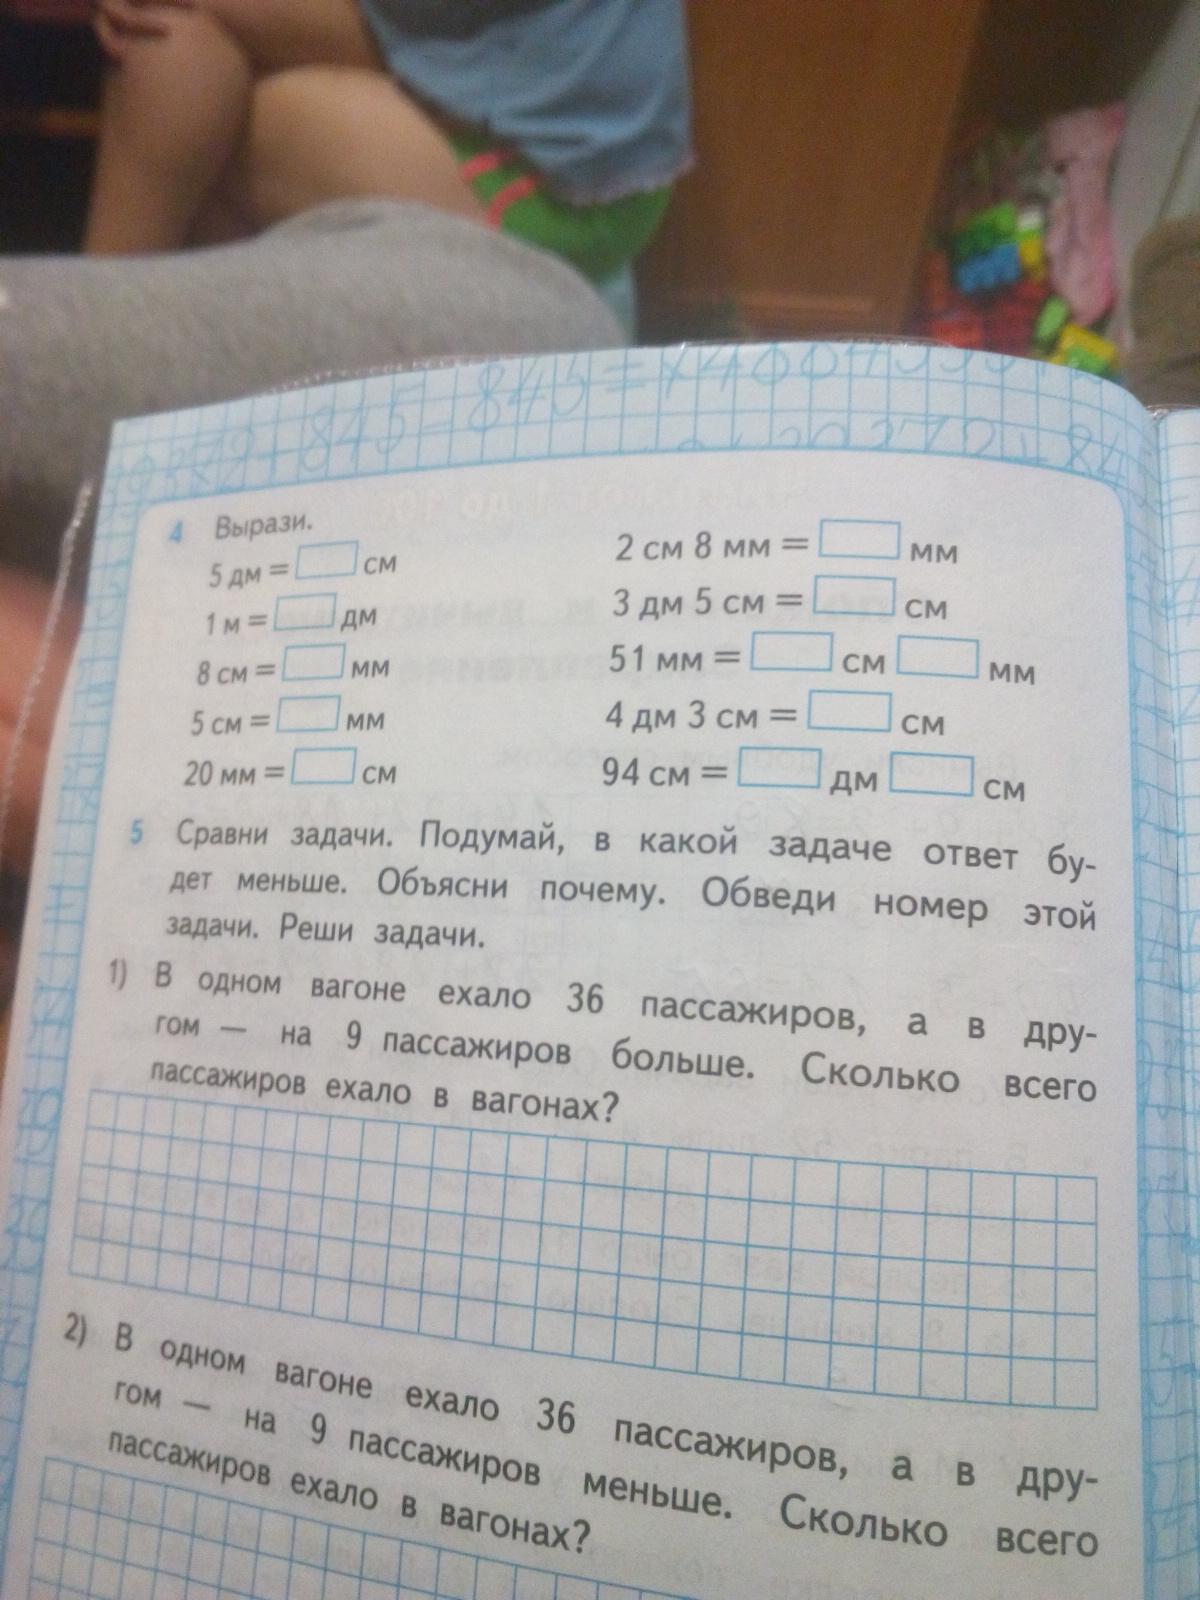 4 Вырази.
5 дм = см
1 м = дм
8 см = мм
5 см = мм
20 мм = см
2 см 8 мм = мм
3 дм 5 см = см
51 мм = см мм
4 дм 3 см = см
94 см = дм см
5 Сравни задачи. Подумай, в какой задаче ответ бу-
дет меньше. Объясни почему. Обведи номер этой
задачи. Реши задачи.
1) В одном вагоне ехало 36 пассажиров, а в дру-
гом — на 9 пассажиров больше. Сколько всего
пассажиров ехало в вагонах?
2) В одном вагоне ехало 36 пассажиров, а в дру-
гом — на 9 пассажиров меньше. Сколько всего
пассажиров ехало в вагонах?